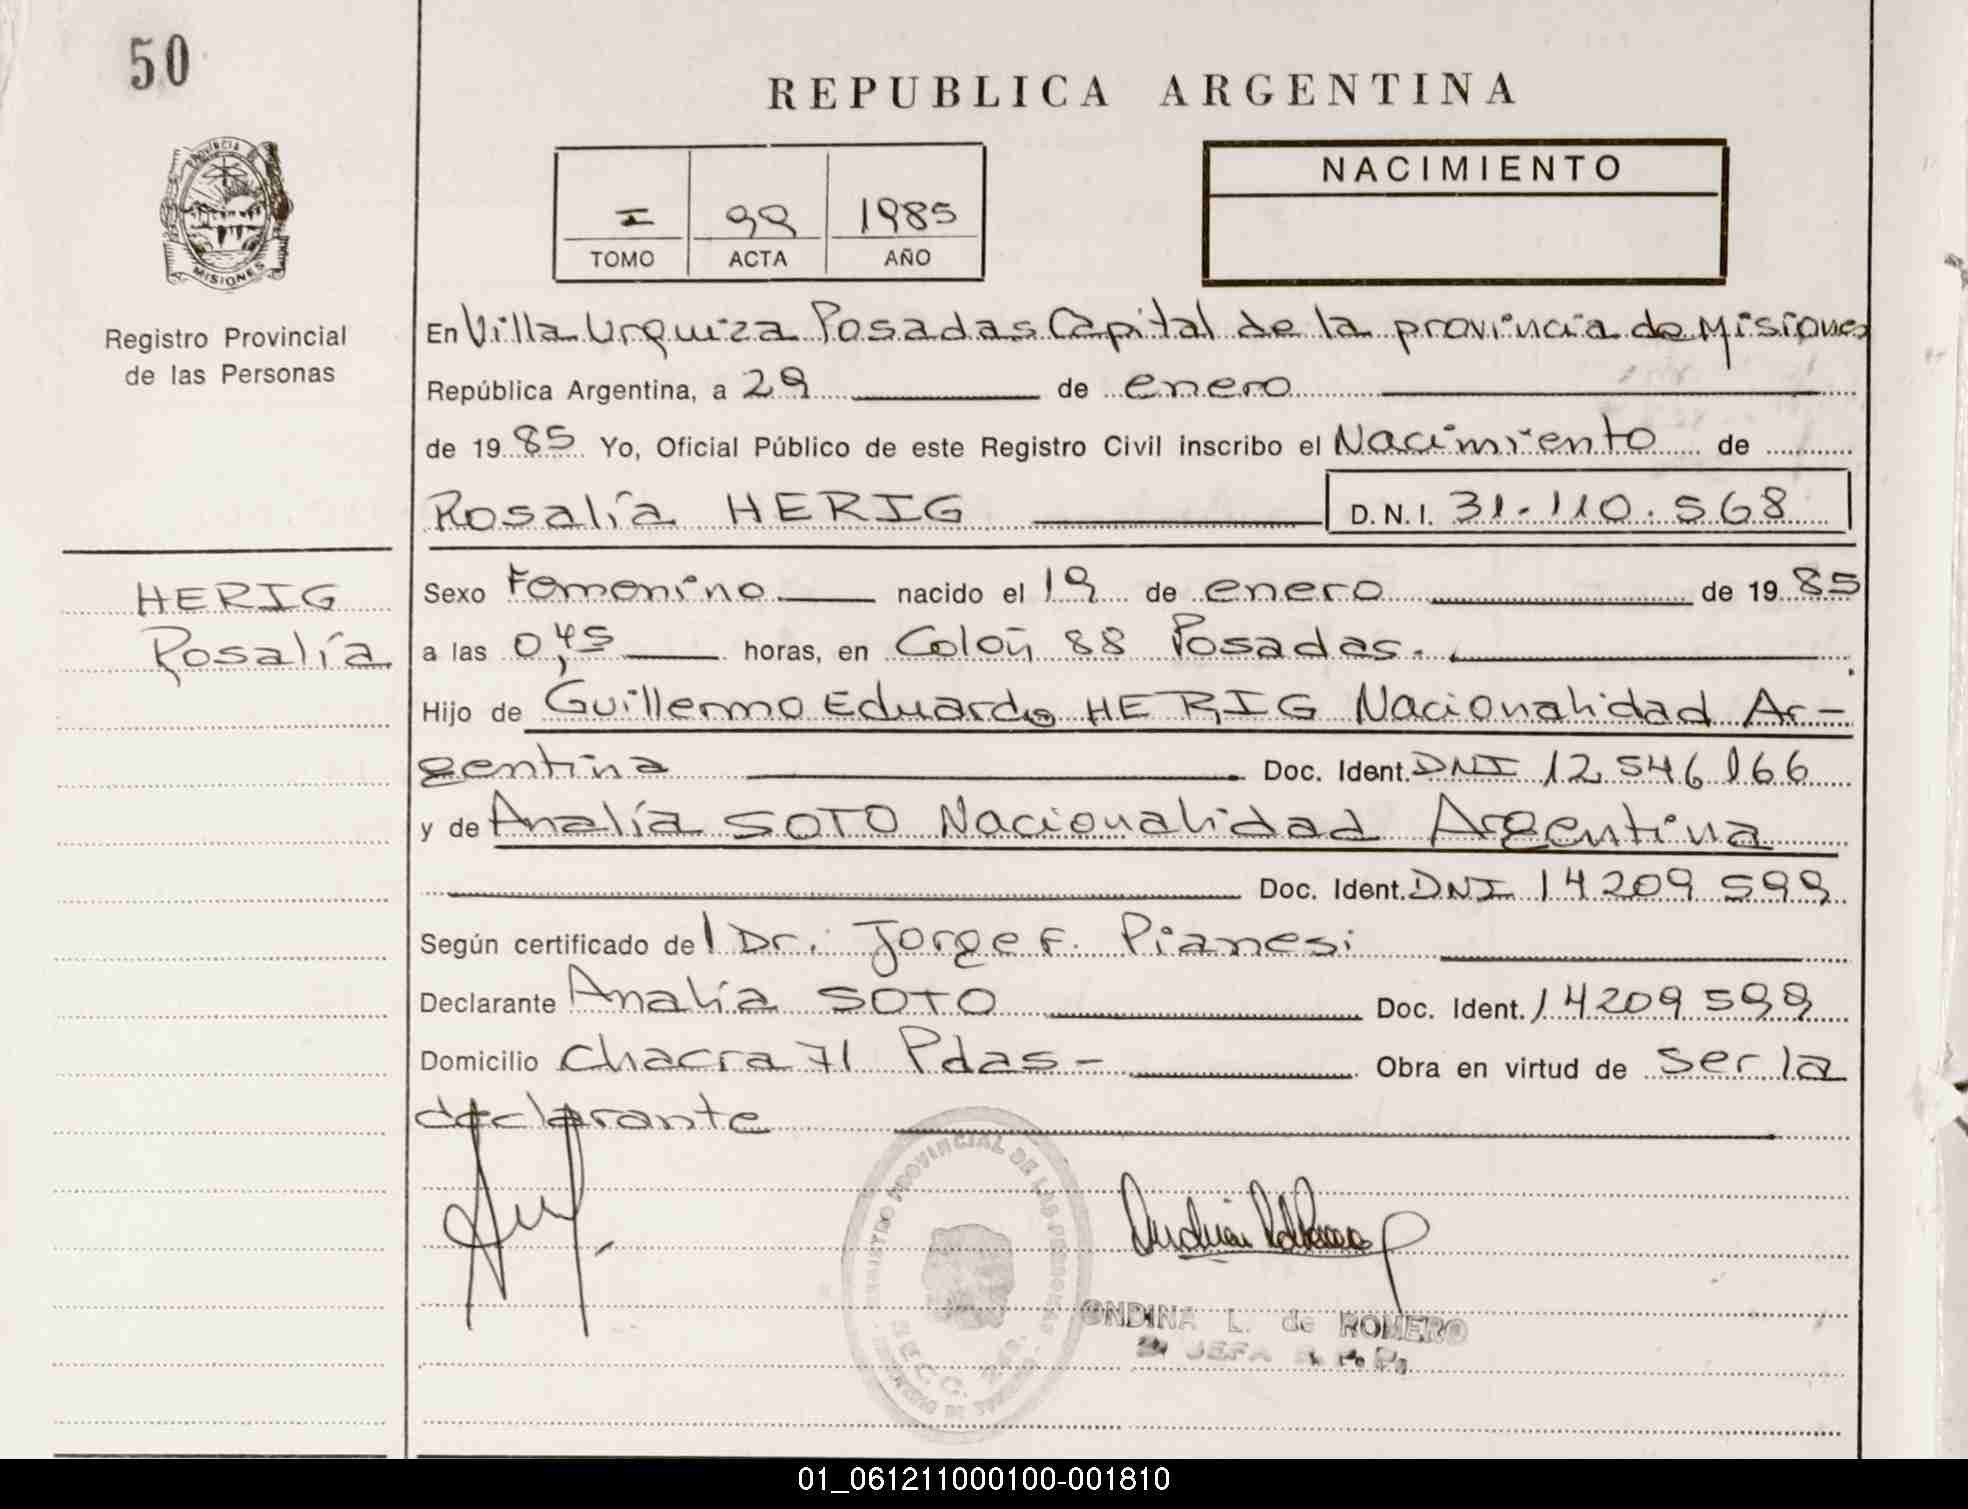 50
REPUBLICA ARGENTINA
PROVINCIA DE
MISIONES
NACIMIENTO
I 99 1985
TOMO ACTA AÑO
Registro Provincial
de las Personas
En Villa Urquiza Posadas Capital de la provincia de Misiones
República Argentina, a 29 de enero
de 1985 Yo, Oficial Público de este Registro Civil inscribo el Nacimiento de
Rosalía HERIG D.N.I. 31.110.568
HERIG
Rosalía
Sexo Femenino nacido el 19 de enero de 1985
a las 0,45 horas, en Colón 88 Posadas.
Hijo de Guillermo Eduardo HERIG Nacionalidad Ar-
gentina Doc. Ident. DNI 12 546 166
y de Analía SOTO Nacionalidad Argentina
Doc. Ident. DNI 14 209 599
Según certificado del Dr. Jorge F. Pianesi
Declarante Analía SOTO Doc. Ident. 14 209 599
Domicilio Chacra 71 Pdas- Obra en virtud de ser la
declarante
REGISTRO PROVINCIAL DE LAS PERSONAS
SECC.
ONDINA L. de ROMERO
JEFA R. P. P.
01_061211000100-001810